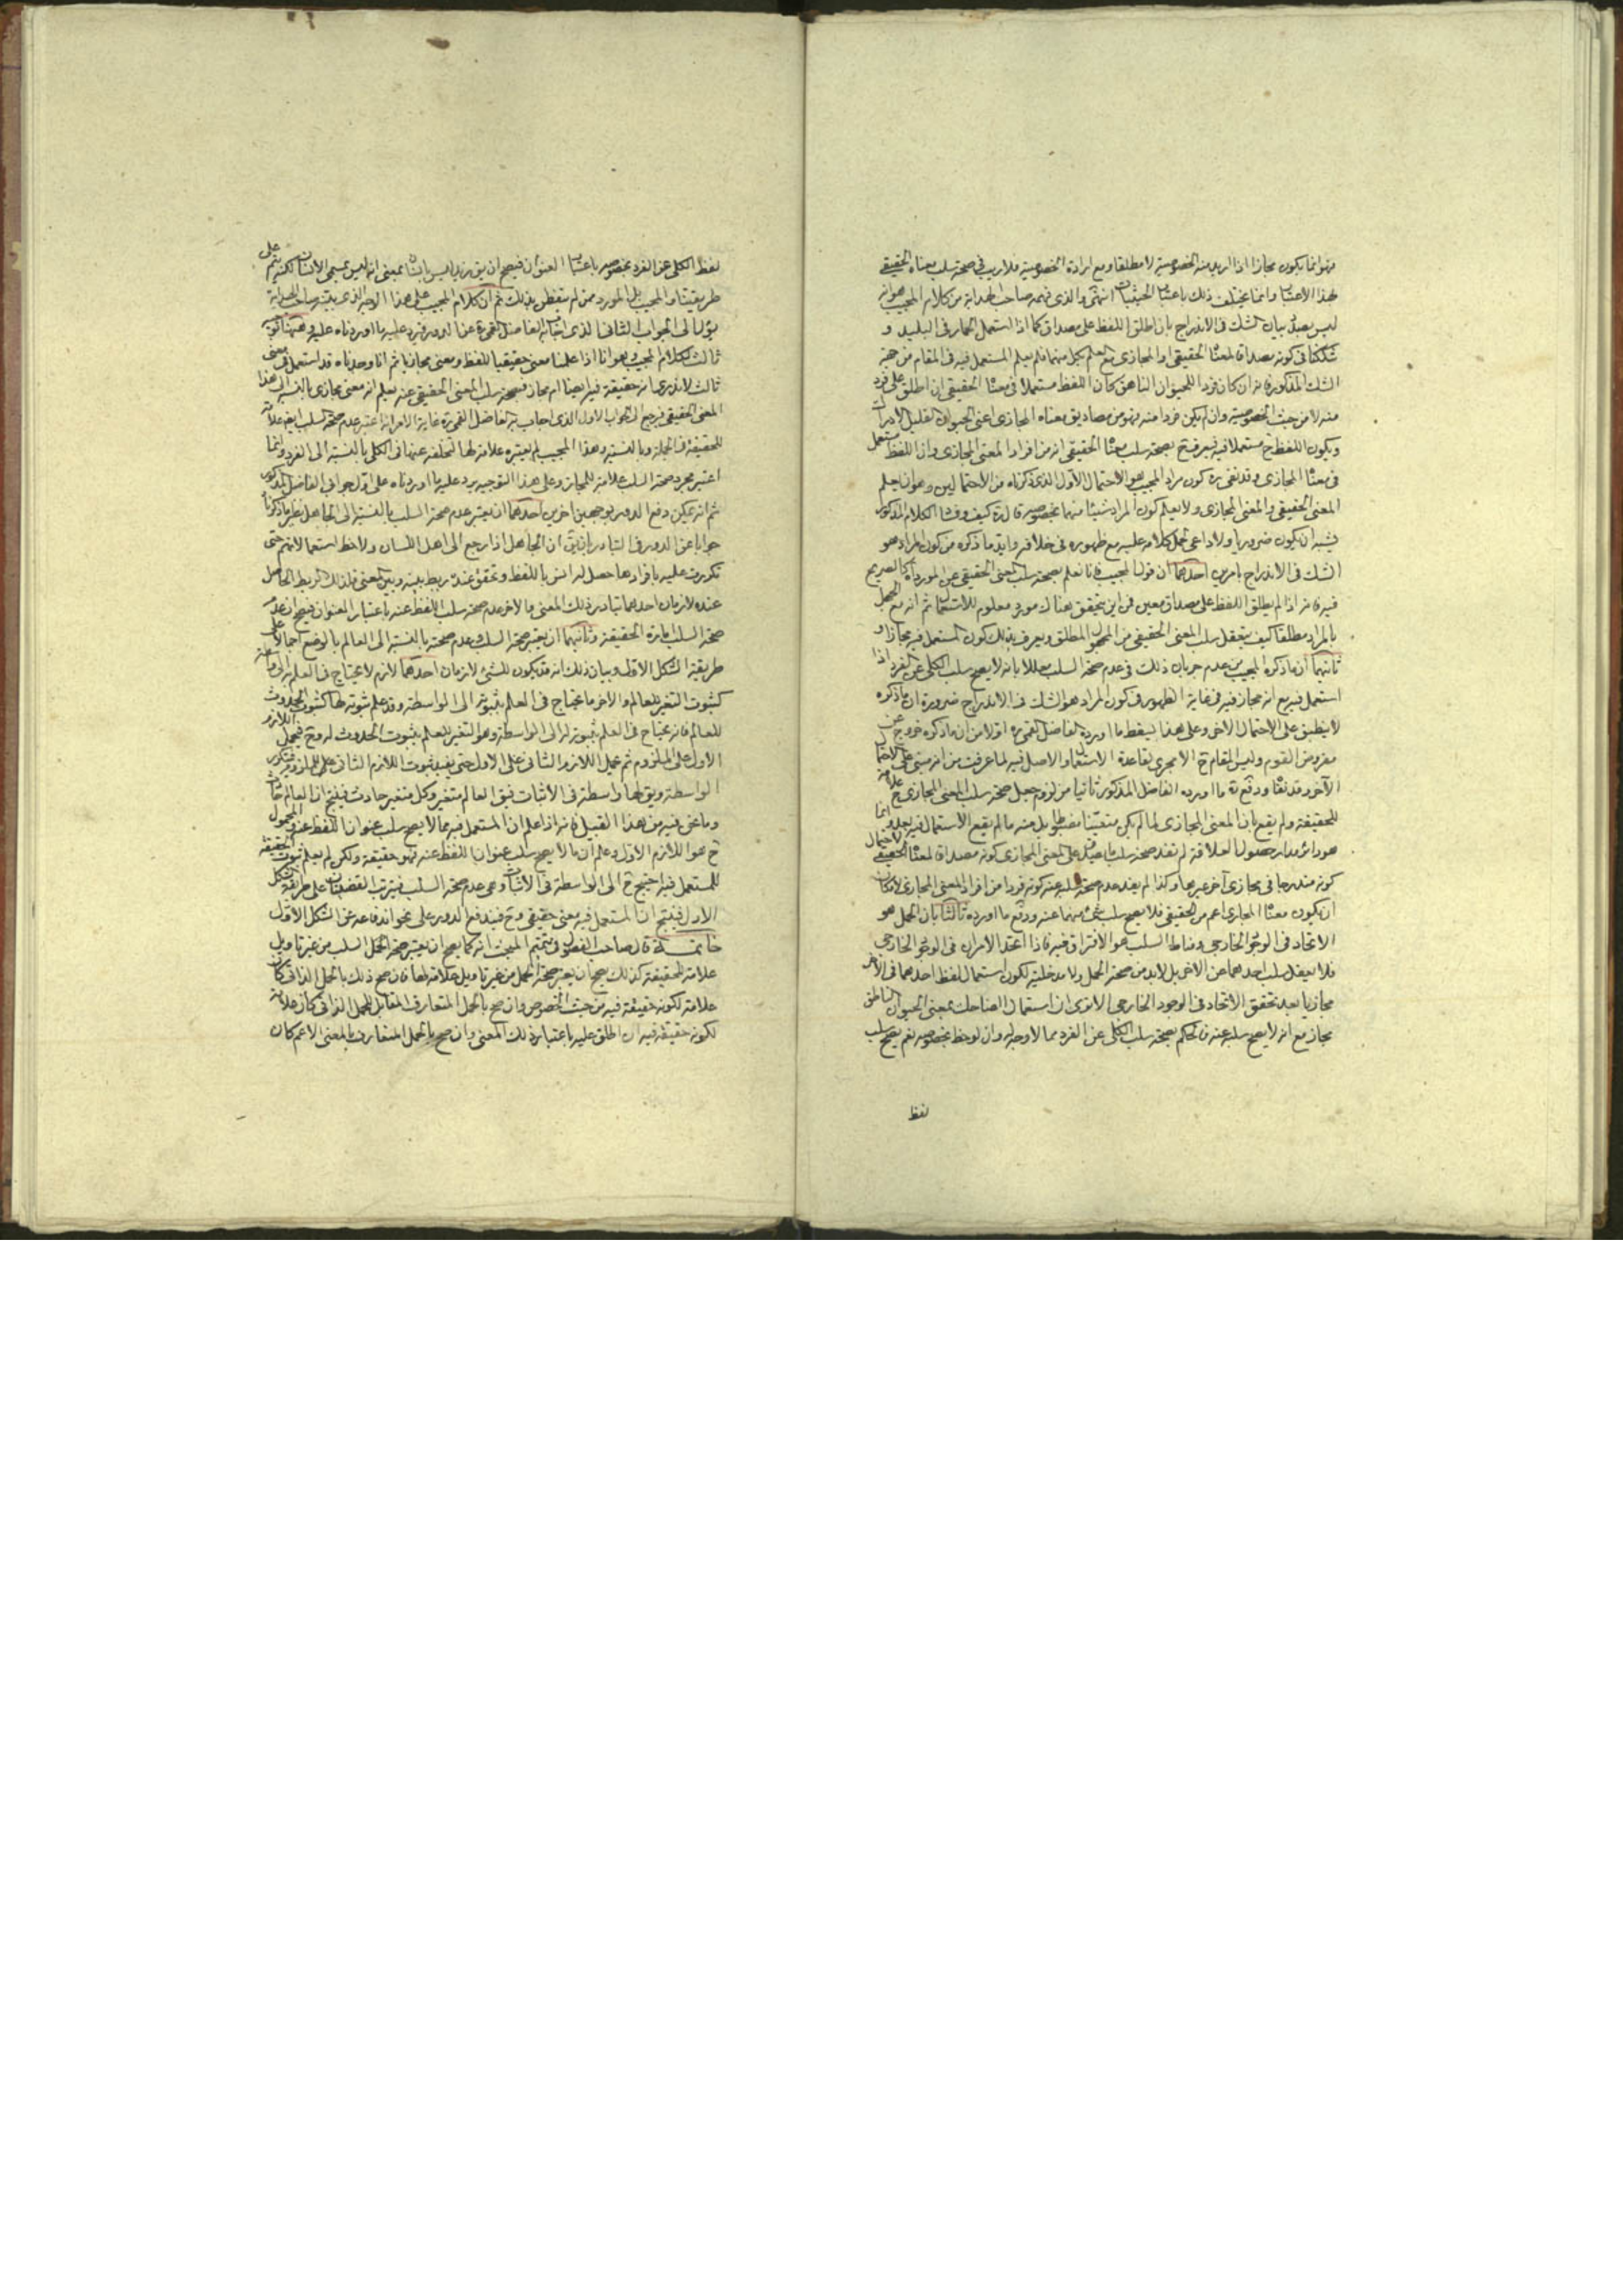 فهو انما يكون مجازا اذا اريد منه الخصوصية لا مطلقا ومع ارادة الخصوصية فلا ريب في صحة سلب معناه الحقيقي
لهذا الاعتبار وانما يختلف ذلك باعتبار الحيثيات انتهى والذي فهمه صاحب الهداية من كلام المجيب هو انه
ليس بصدد بيان الشك في الاندراج بان اطلق اللفظ على مصداق كما اذا استعمل الحمار في البليد و
شككنا في كونه مصداقا لمعناه الحقيقي او المجازي مع العلم بكل منهما فلم يعلم المستعمل فيه في المقام من جهة
الشك المذكور فانه ان كان فردا للحيوان الناهق كان اللفظ مستعملا في معناه الحقيقي ان اطلق على فرد
منه لا من حيث الخصوصية وان لم يكن فردا منه فهو من مصاديق معناه المجازي اعني الحيوان القليل الادراك
ويكون اللفظ ح مستعملا فيه فيعرف ح بصحة سلب معناه الحقيقي انه من افراد المعنى المجازي وان اللفظ مستعمل
في معناه المجازي وقد نفى ره كون مراد المجيب هو الاحتمال الاول الذي ذكرناه من الاحتمالين وهو ان يعلم
المعنى الحقيقي والمعنى المجازي ولا يعلم كون المراد شيئا منهما بخصوصه قال ره كيف وفساد الكلام المذكور
يشبه ان يكون ضروريا ولا داعي لحمل كلامه عليه مع ظهوره في خلافه وايد ما ذكره من كون المراد هو
الشك في الاندراج بامرين احدهما ان قول المجيب فانا نعلم بصحة سلب المعنى الحقيقي عن المورد كالصريح
فيه فانه اذا لم يطلق اللفظ على مصداق معين فمن اين يتحقق هناك مورد معلوم للاستعمال ثم انه مع الجهل
بالمراد مطلقا كيف يتعقل سلب المعنى الحقيقي من المجهول المطلق ويعرف بذلك كون المستعمل فيه مجازا و
ثانيهما ان ما ذكره المجيب من عدم جريان ذلك في عدم صحة السلب معللا بانه لا يصح سلب الكلي عن الفرد اذا
استعمل فيه مع انه مجاز فيه في غاية الظهور في كون المراد هو الشك في الاندراج ضرورة ان ما ذكره
لا ينطبق على الاحتمال الاخر وعلى هذا ليسقط ما اورده الفاضل القمي ره اولا من ان ما ذكره خروج عن
مفروض القوم وليس المقام ح الا مجرى لقاعدة الاستعمال والاصل فيه لما عرفت من انه مبني على الاحتمال
الآخر وقد نفاه ودفع ره ما اورده الفاضل المذكور ثانيا من لزوم جعل صحة سلب المعنى المجازي ح علامة
للحقيقة ولم يقع بان المعنى المجازي لما لم يكن متعينا مضبوطا بل منه ما لم يقع الاستعمال فيه بعد وانما
هو دائر مدار حصول العلاقة لم تفد صحة سلب ما يصدق على المعنى المجازي كونه مصداقا لمعناه الحقيقي لاحتمال
كونه مندرجا في مجازي آخر غيرها وكذا لم يفد عدم صحة سلبه عنه كونه فردا من افراد المعنى المجازي لامكان
ان يكون معناه المجازي اعم من الحقيقي فلا يصح سلب شئ منهما عنه ودفع ما اورده ثالثا بان الحمل هو
الاتحاد في الوجود الخارجي ومناط السلب هو الافتراق فيه فاذا اتحد الامران في الوجود الخارجي
فلا يعقل سلب احدهما عن الاخر بل لا بد من صحة الحمل ولا مدخلية لكون استعمال لفظ احدهما في الآخر
مجازيا بعد تحقق الاتحاد في الوجود الخارجي الا ترى ان استعمال الضاحك بمعنى الحيوان الناطق
مجاز مع انه لا يصح سلبه عنه فالحكم بصحة سلب الكلي عن الفرد مما لا وجه له وان لوحظ بخصوصه نعم يصح سلب
لفظ
لفظ الكلي عن الفرد بخصوصه باعتبار العنوان فيصح ان يق زيد ليس بانسان بمعنى انه ليس بمسمى الانسان لكنه لم على
طريقتنا والمجيب بل المورد ممن لم يتفطن بذلك ثم ان كلام المجيب على هذا الوجه الذي بينه صاحب الهداية
يؤل الى الجواب الثاني الذي اجاب به الفاضل القمي ره عن الدور فيرد عليه ما اوردناه عليه وههنا توجيه
ثالث لكلام المجيب وهو انا اذا علمنا معنى حقيقيا للفظ ومعنى مجازيا ثم انا وجدناه قد استعمل في معنى
ثالث لا ندري انه حقيقة فيه ايضا ام مجاز فبصحة سلب المعنى الحقيقي عنه يعلم انه معنى مجازي بالنسبة الى هذا
المعنى الحقيقي فيرجع الى الجواب الاول الذي اجاب به الفاضل القمي ره غاية الامر انه اعتبر عدم صحة السلب ايضا علامة
للحقيقة في الجملة وبالنسبة وهذا المجيب لم يعتبره علامة لها لتخلفه عنها في الكلي بالنسبة الى الفرد وانما
اعتبر مجرد صحة السلب علامة للمجاز وعلى هذا التوجيه يرد عليه ما اوردناه على اول جوابي الفاضل المذكور
ثم انه يمكن دفع الدور بوجهين اخرين احدهما ان يعتبر عدم صحة السلب بالنسبة الى الجاهل نظير ما ذكرناه
جوابا عن الدور في التبادر بان يق ان الجاهل اذا رجع الى اهل اللسان ولاحظ استعمالاتهم حتى
تكررت عليه بافرادها حصل له انس باللفظ وتحقق عنده ربط بينه وبين المعنى فلذلك الربط الحاصل
عنده لازمان احدهما تبادر ذلك المعنى والاخر عدم صحة سلب اللفظ عنه باعتبار العنوان فيصح ان عدم
صحة السلب امارة الحقيقة وثانيهما ان يعتبر صحة السلب وعدم صحته بالنسبة الى العالم بالوضع اجمالا على
طريقة الشكل الاول وبيان ذلك انه قد يكون للشئ لازمان احدهما لازم لا يحتاج في العلم به الى واسطة
كثبوت التغير للعالم والاخر ما يحتاج في العلم بثبوته الى الواسطة وقد علم ثبوته لها كثبوت الحدوث
للعالم فانه يحتاج في العلم بثبوته له الى الواسطة وهو التغير للعلم بثبوت الحدوث له وح فيحمل اللازم
الاول على الملزوم ثم يحمل اللازم الثاني على الاول حتى يفيد ثبوت اللازم الثاني على الملزوم فيتكرر
الواسطة ويق لها واسطة في الاثبات فيق العالم متغير وكل متغير حادث فينتج ان العالم حادث
وما نحن فيه من هذا القبيل فانه اذا علم ان المستعمل فيه مما لا يصح سلب عنوان اللفظ عنه والمحمول
ح هو اللازم الاول وعلم ان ما لا يصح سلب عنوان اللفظ عنه فهو حقيقة ولكن لم يعلم ثبوت الحقيقة
للمستعمل فيه احتيج ح الى الواسطة في الاثبات وهي عدم صحة السلب فيترتب القضيتان على طريقة الشكل
الاول فينتج ان المستعمل فيه معنى حقيقي وح فيندفع الدور على نحو اندفاعه عن الشكل الاول
خاتمة قال صاحب الفصول في تتميم المبحث انه كما يصح ان يعتبر صحة الحمل السلب من غير تاويل
علامة للحقيقة كذلك يصح ان يعتبر صحة الحمل من غير تاويل علامة لها فان صح ذلك بالحمل الذاتي كان
علامة لكونه حقيقة فيه من حيث الخصوص وان صح بالحمل المتعارف المقابل للحمل الذاتي كان علامة
لكونه حقيقة فيه ان اطلق عليه باعتبار ذلك المعنى وان صح بالحمل المتعارف بالمعنى الاعم كان